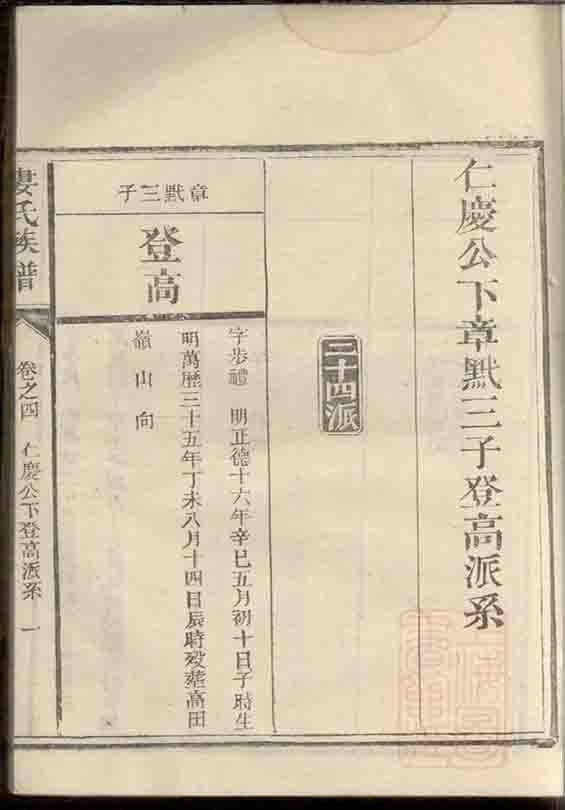 仁慶公下章默三子登高派系
三十四派
章默三子
登高
字步禮 明正德十六年辛巳五月初十日子時生
明萬歷三十五年丁未八月十四日辰時歿塟高田
嶺山向
婁氏族譜
卷之四 仁慶公下登高派系 一